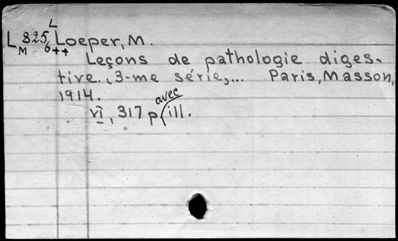 L
L 825 Loeper, M.
M 6++
Leçons de pathologie diges-
tive., 3-me série,... Paris, Masson,
1914.
avec
VI, 317 p. ill.